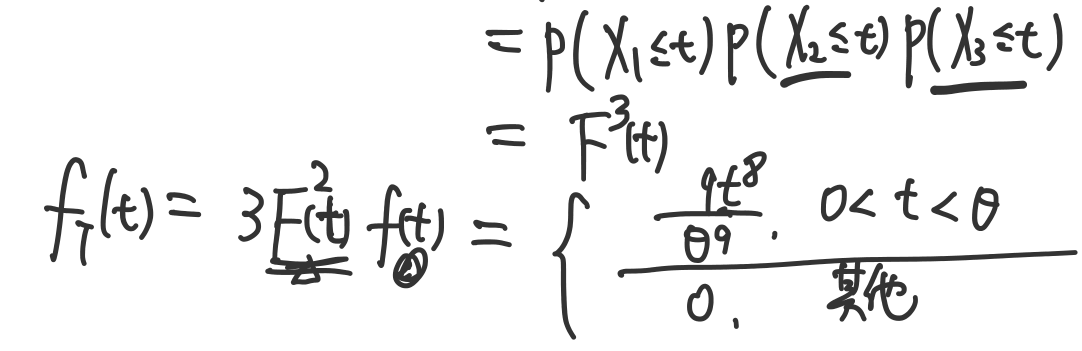 = P(X₁≤t)P(X₂≤t)P(X₃≤t)
= F³(t)
f_T(t) = 3F²(t)f(t) = { 9t⁸/θ⁹. 0<t<θ
0, 其他